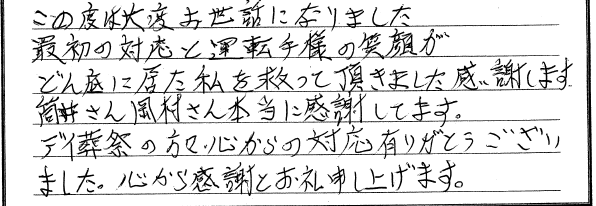 この度は大変お世話になりました
最初の対応と運転手様の笑顔が
どん底に居た私を救って頂きました感謝します
筒井さん岡村さん本当に感謝してます。
デイ葬祭の方々心からの対応有りがとうござい
ました。心から感謝とお礼申し上げます。